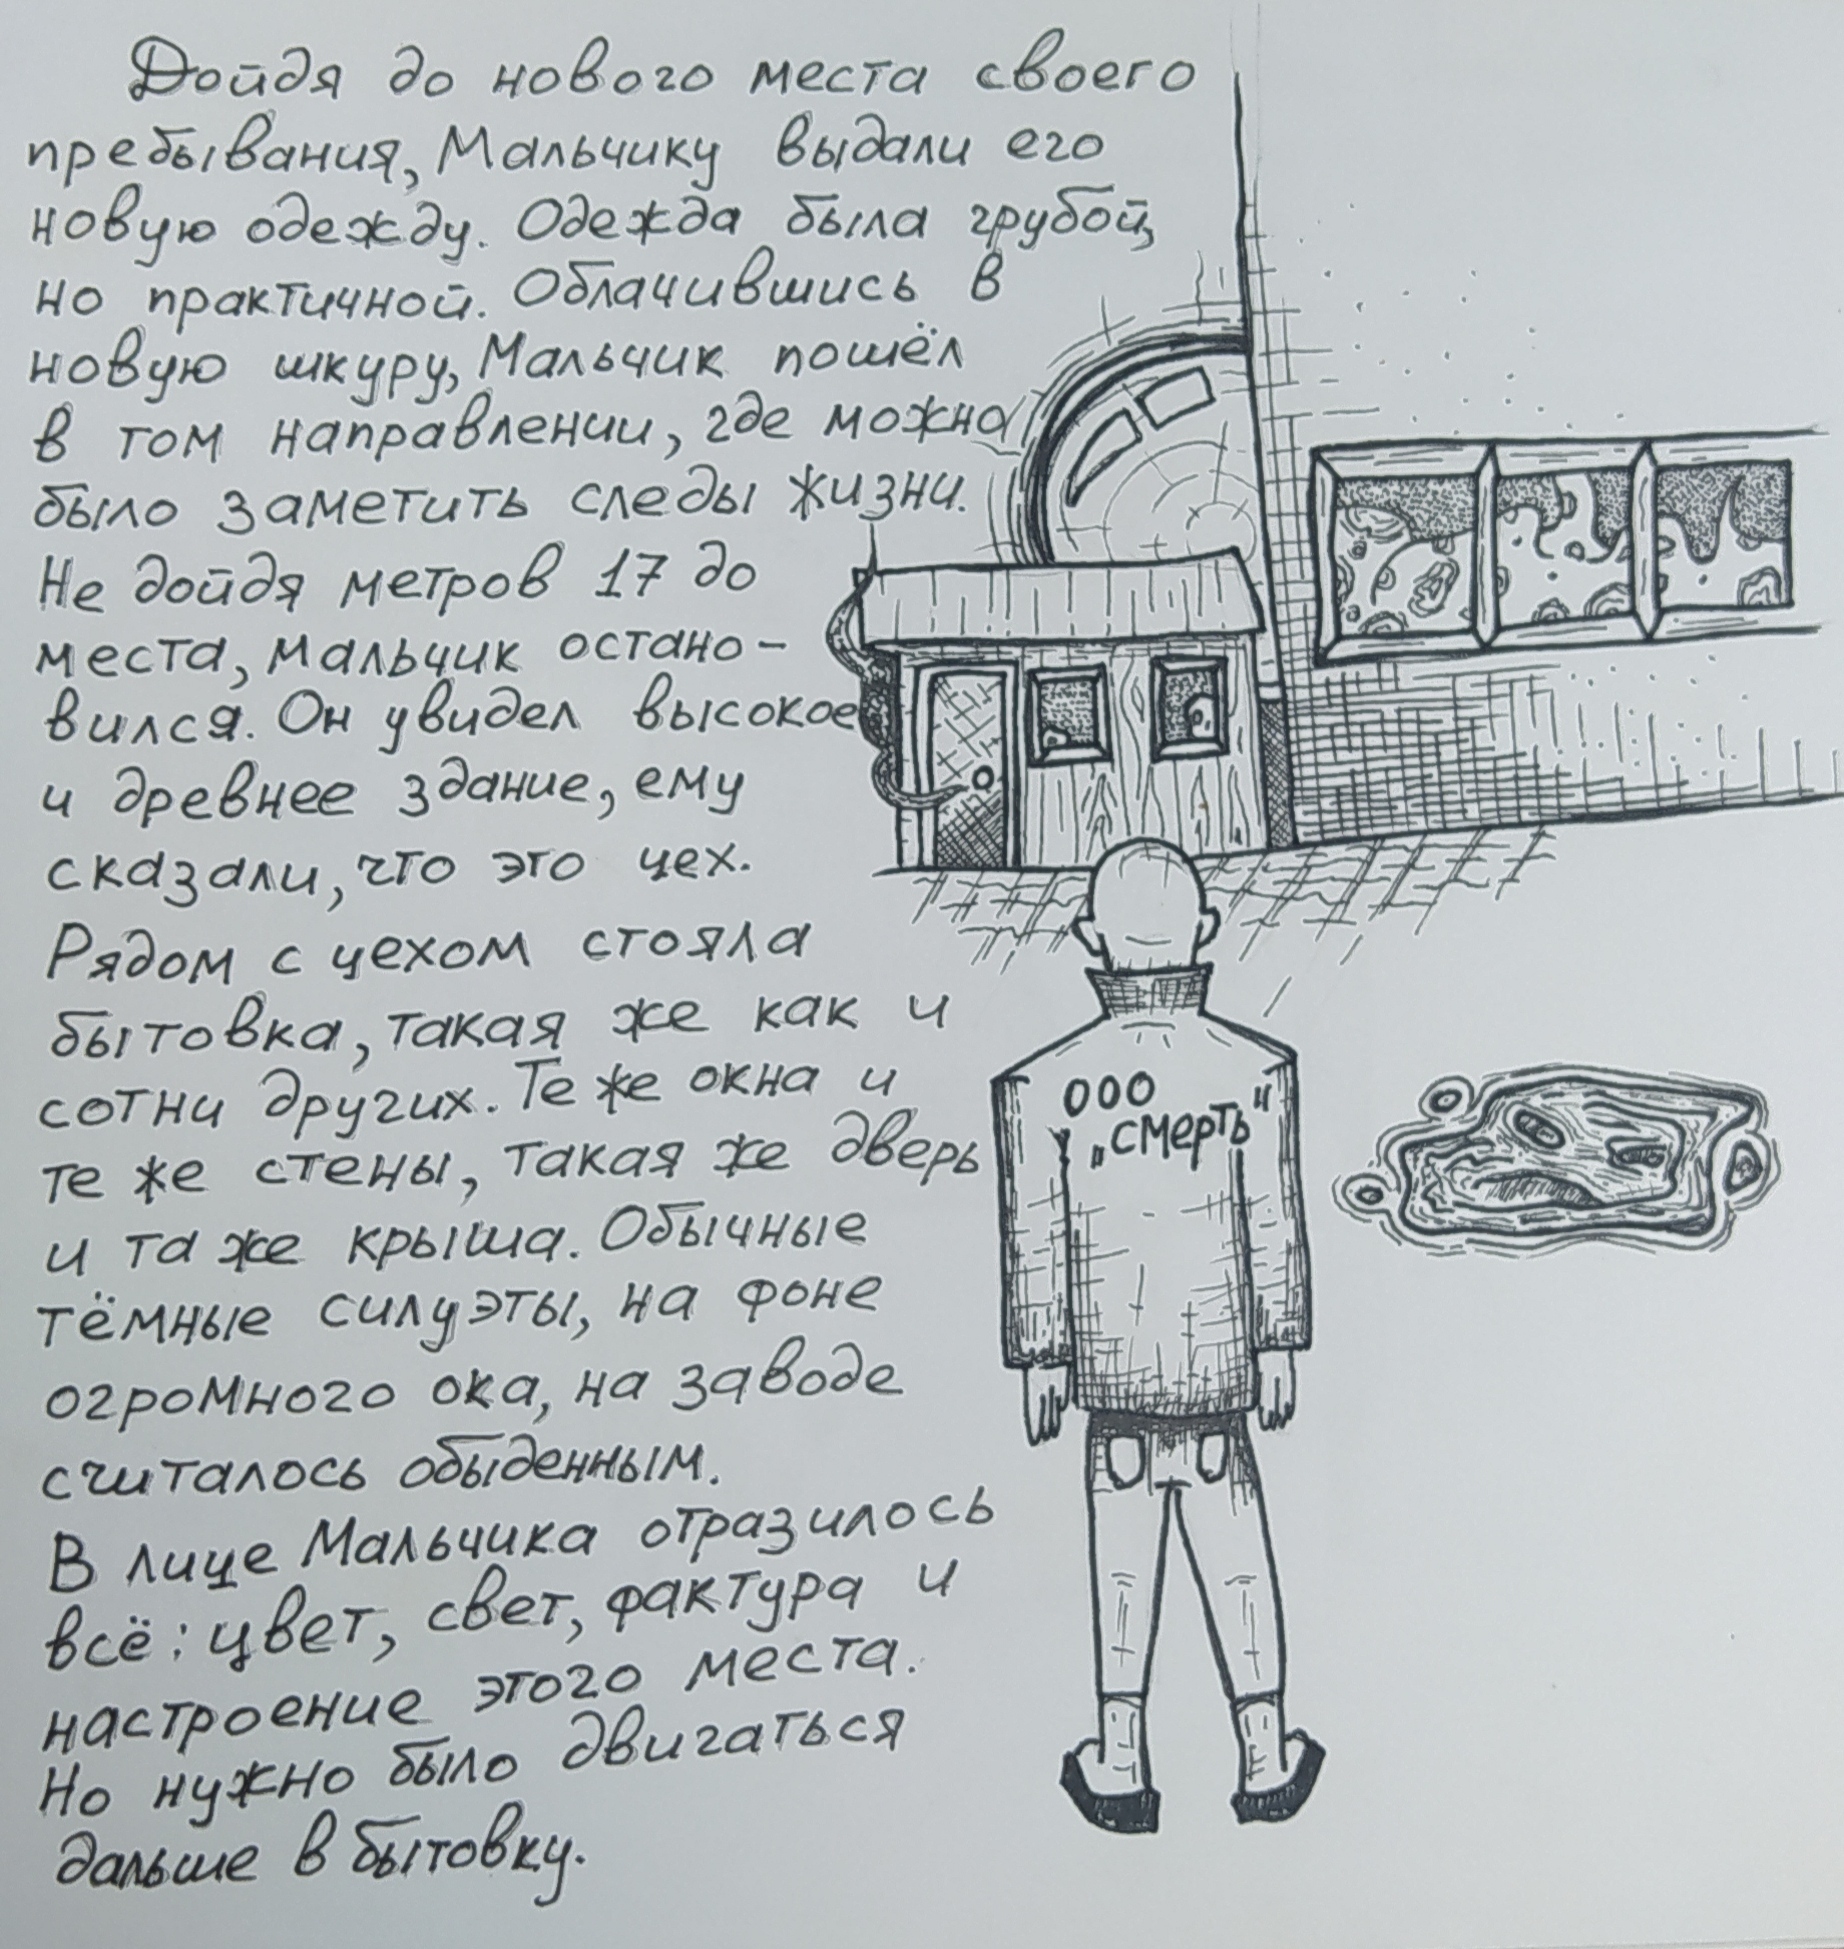 Дойдя до нового места своего
пребывания, Мальчику выдали его
новую одежду. Одежда была грубой,
но практичной. Облачившись в
новую шкуру, Мальчик пошёл
в том направлении, где можно
было заметить следы жизни.
Не дойдя метров 17 до
места, мальчик остано-
вился. Он увидел высокое
и древнее здание, ему
сказали, что это цех.
Рядом с цехом стояла
бытовка, такая же как и
сотни других. Те же окна и
те же стены, такая же дверь
и та же крыша. Обычные
тёмные силуэты, на фоне
огромного ока, на заводе
считалось обыденным.
В лице Мальчика отразилось
всё: цвет, свет, фактура и
настроение этого места.
Но нужно было двигаться
дальше в бытовку.
ООО
„смерть"